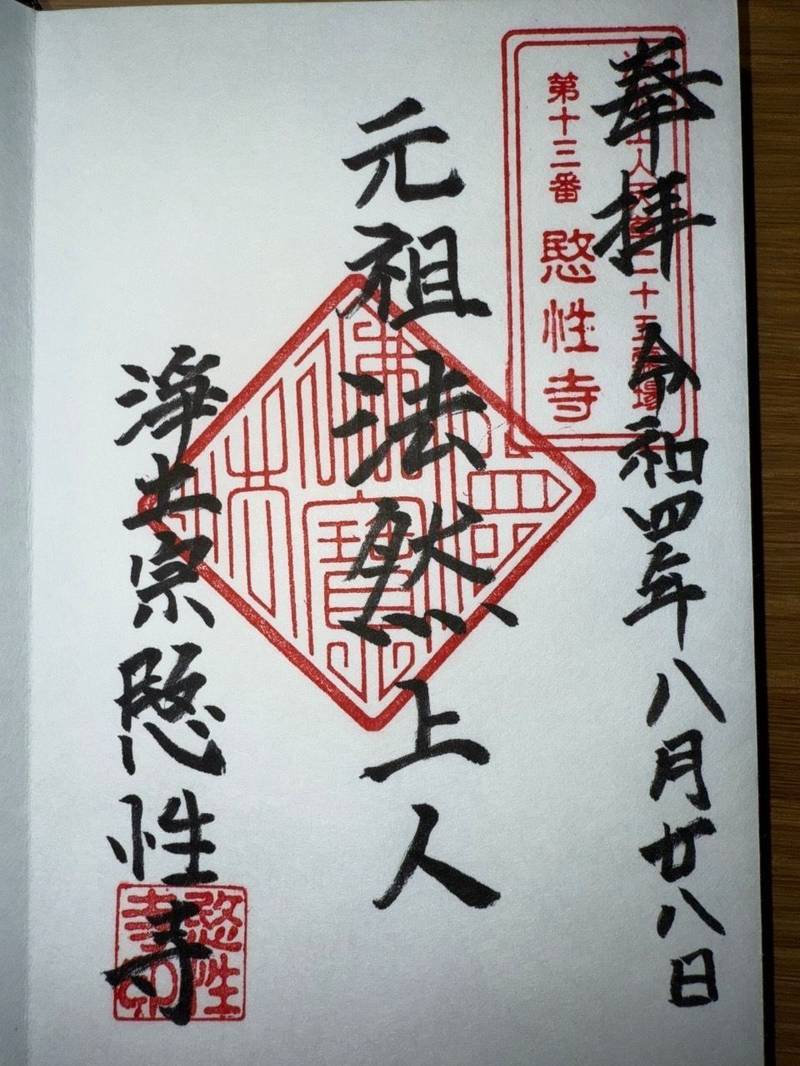 奉拝 令和四年八月廿八日
上人 二十五霊場
第十三番 愍性寺
元祖法然上人
浄土宗愍性寺
愍性
寺印